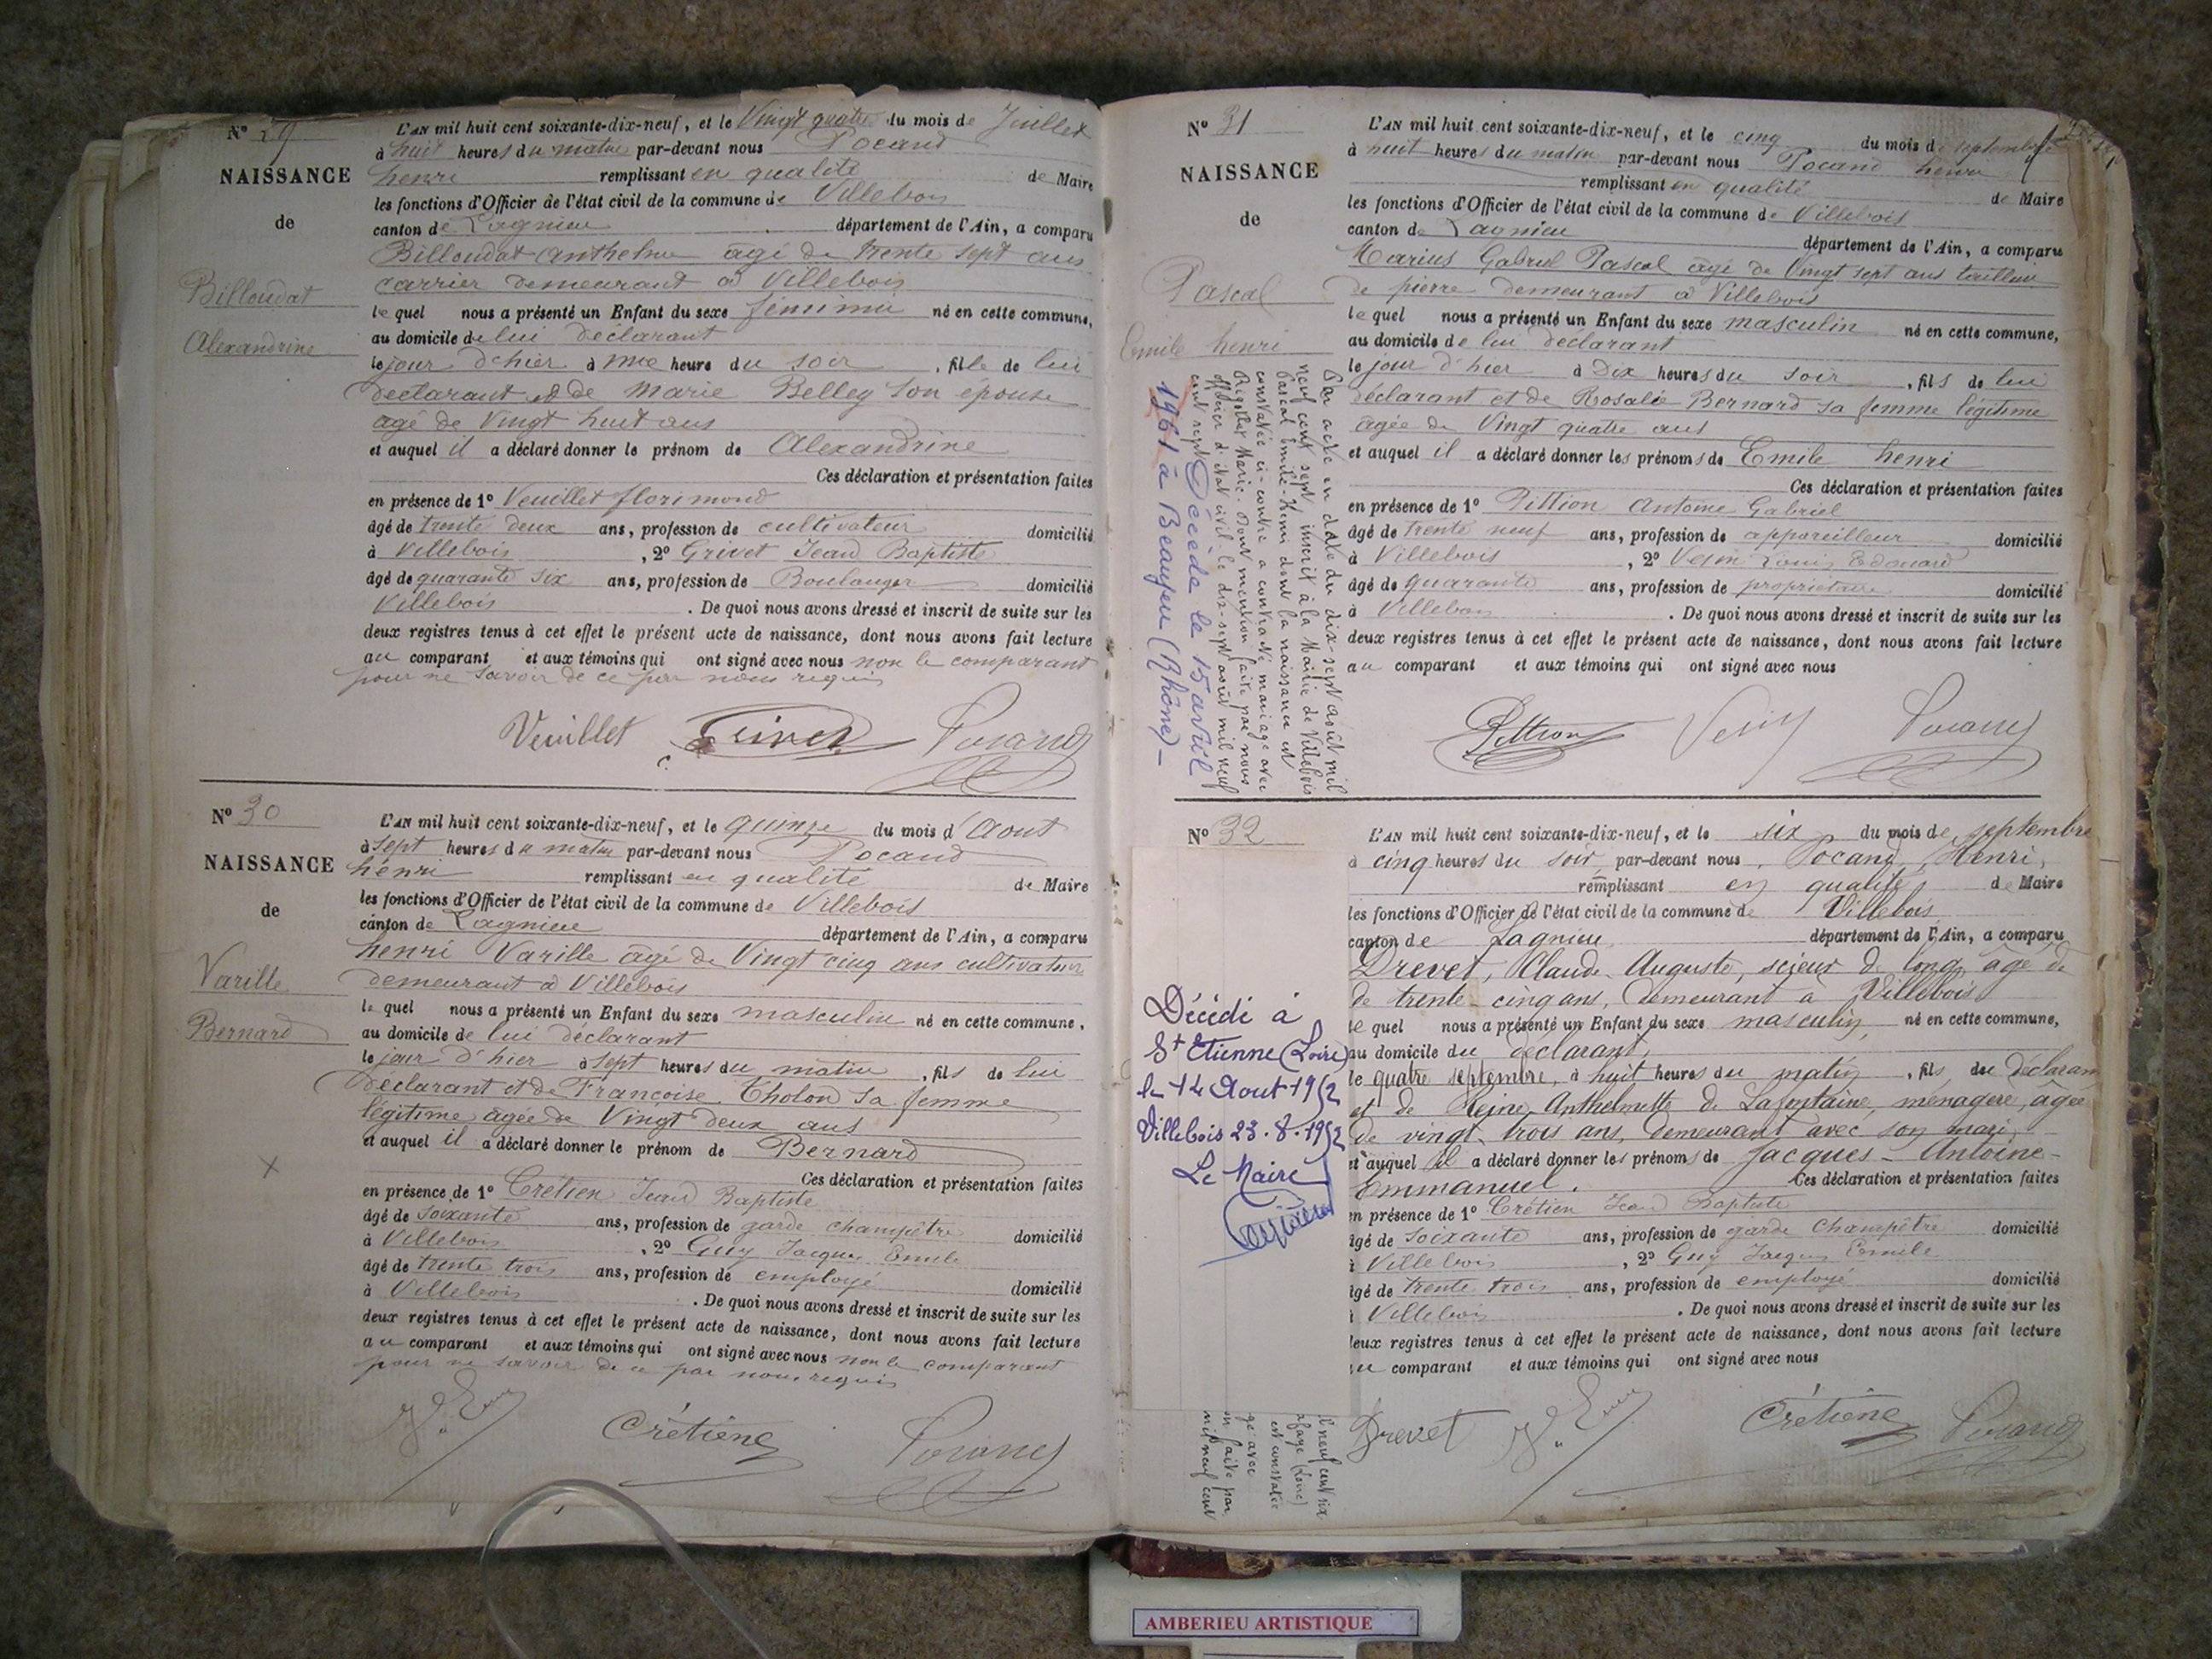 N° 29
NAISSANCE
de
Billoudat
Alexandrine
L'AN mil huit cent soixante-dix-neuf, et le Vingt quatre du mois de Juillet
à huit heures du matin par-devant nous Pocand
henri remplissant en qualité de Maire
les fonctions d'Officier de l'état civil de la commune de Villebois
canton de Lagnieu département de l'Ain, a comparu
Billoudat Anthelme agé de trente sept ans
carrier demeurant à Villebois
le quel nous a présenté un Enfant du sexe féminin né en cette commune,
au domicile de lui déclarant
le jour d'hier à une heure du soir, fille de lui
déclarant et de Marie Belley son épouse
agé de Vingt huit ans
et auquel il a déclaré donner le prénom de Alexandrine
Ces déclaration et présentation faites
en présence de 1° Veuillet florimond
âgé de trente deux ans, profession de cultivateur domicilié
à Villebois, 2° Grivet Jean Baptiste
âgé de quarante six ans, profession de Boulanger domicilié
Villebois. De quoi nous avons dressé et inscrit de suite sur les
deux registres tenus à cet effet le présent acte de naissance, dont nous avons fait lecture
au comparant et aux témoins qui ont signé avec nous non le comparant
pour ne savoir de ce par nous requis
Veuillet Grivet Pocand
N° 30
NAISSANCE
de
Varille
Bernard
L'AN mil huit cent soixante-dix-neuf, et le quinze du mois d'Aout
à sept heures du matin par-devant nous Pocand
henri remplissant en qualité de Maire
les fonctions d'Officier de l'état civil de la commune de Villebois
canton de Lagnieu département de l'Ain, a comparu
henri Varille âgé de Vingt cinq ans cultivateur
demeurant à Villebois
le quel nous a présenté un Enfant du sexe masculin né en cette commune,
au domicile de lui déclarant
le jour d'hier à sept heures du matin, fils de lui
déclarant et de Françoise Cholon sa femme
légitime agée de Vingt deux ans
et auquel il a déclaré donner le prénom de Bernard
Ces déclaration et présentation faites
en présence de 1° Crétien Jean Baptiste
âgé de soixante ans, profession de garde champêtre domicilié
à Villebois, 2° Guy Jacques Emile
âgé de trente trois ans, profession de employé domicilié
à Villebois. De quoi nous avons dressé et inscrit de suite sur les
deux registres tenus à cet effet le présent acte de naissance, dont nous avons fait lecture
au comparant et aux témoins qui ont signé avec nous non le comparant
pour ne savoir de ce par nous requis
Crétiene Pocand
N° 31
NAISSANCE
de
Pascal
Emile henri
L'AN mil huit cent soixante-dix-neuf, et le cinq du mois de septembre
à huit heures du matin par-devant nous Pocand henri
remplissant en qualité de Maire
les fonctions d'Officier de l'état civil de la commune de Villebois
canton de Lagnieu département de l'Ain, a comparu
Marius Gabriel Pascal âgé de Vingt sept ans tailleur
de pierre demeurant à Villebois
le quel nous a présenté un Enfant du sexe masculin né en cette commune,
au domicile de lui déclarant
le jour d'hier à Dix heures du soir, fils de lui
déclarant et de Rosalie Bernard sa femme légitime
agée de Vingt quatre ans
et auquel il a déclaré donner les prénoms de Emile henri
Ces déclaration et présentation faites
en présence de 1° Pittion Antoine Gabriel
âgé de trente neuf ans, profession de appareilleur domicilié
à Villebois, 2° Vesin Louis Edouard
âgé de quarante ans, profession de propriétaire domicilié
à Villebois. De quoi nous avons dressé et inscrit de suite sur les
deux registres tenus à cet effet le présent acte de naissance, dont nous avons fait lecture
au comparant et aux témoins qui ont signé avec nous
Pittion Pocand
Par acte en date du dix-sept août mil
neuf cent sept inscrit à la Mairie de Villebois
Pascal Emile-Henri dont la naissance est
constatée ci-contre a contracté mariage avec
Rigollet Marie. Dont mention faite par nous
officier d'état civil le dix-sept août mil neuf
cent sept
Décédé le 15 avril
1961 à Beaujeu (Rhône)
N° 32
L'AN mil huit cent soixante-dix-neuf, et le six du mois de septembre
à cinq heures du soir par-devant nous, Pocand, Henri,
remplissant en qualité de Maire
les fonctions d'Officier de l'état civil de la commune de Villebois
canton de Lagnieu département de l'Ain, a comparu
Drevet, Claude Auguste, scieur de long, âgé de
de trente-cinq ans, demeurant à Villebois
le quel nous a présenté un Enfant du sexe masculin, né en cette commune,
au domicile du déclarant,
le quatre septembre, à huit heures du matin, fils du déclarant
et de Reine Anthelmette de Lafontaine, ménagère, âgée
de vingt trois ans, demeurant avec son mari,
et auquel il a déclaré donner les prénoms de Jacques-Antoine-
Emmanuel. Ces déclaration et présentation faites
en présence de 1° Crétien Jean Baptiste
âgé de soixante ans, profession de garde Champêtre domicilié
à Villebois, 2° Guy Jacques Emile
âgé de trente trois ans, profession de employé domicilié
à Villebois. De quoi nous avons dressé et inscrit de suite sur les
deux registres tenus à cet effet le présent acte de naissance, dont nous avons fait lecture
au comparant et aux témoins qui ont signé avec nous
Drevet Crétiene Pocand
Décédé à
St Etienne (Loire)
le 14 Aout 1952
Villebois 23.8.1952
Le Maire
l neuf cent six
(Loire)
est constatée
ge avec
on faite par
mil neuf cent
AMBERIEU ARTISTIQUE